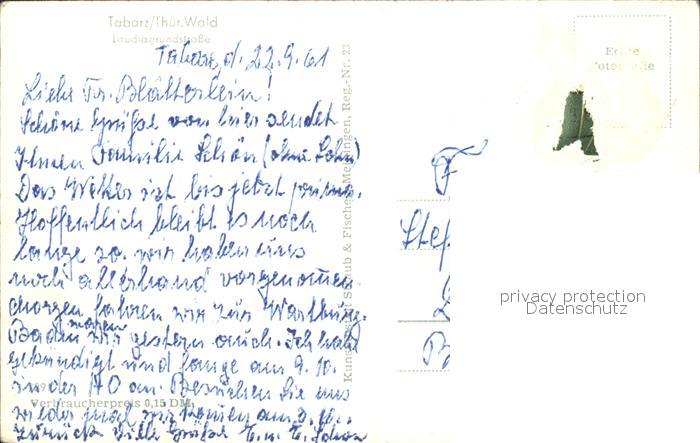 Tabarz/Thür. Wald
Lauchagrundstraße
Tabarz, d. 22.9.61
Liebe Fr. Blätterlein!
Schöne Grüße von hier sendet
Ihnen Familie Schön (ohne Sohn)
Das Wetter ist bis jetzt prima.
Hoffentlich bleibt es noch
lange so. wir haben uns
noch allerhand vorgenommen
Morgen fahren wir zur Wartburg.
Baden waren wir gestern auch. Ich habe
gekündigt und fange am 9.10.
in der HO an. Besuchen Sie uns
wieder mal wir kommen am
Verbraucherpreis 0,15 DM
zurück Viele Grüße
Schaub & Fischer, Meiningen, Reg.-Nr. 23
Echte
Fotografie
Stef
B
privacy protection
Datenschutz